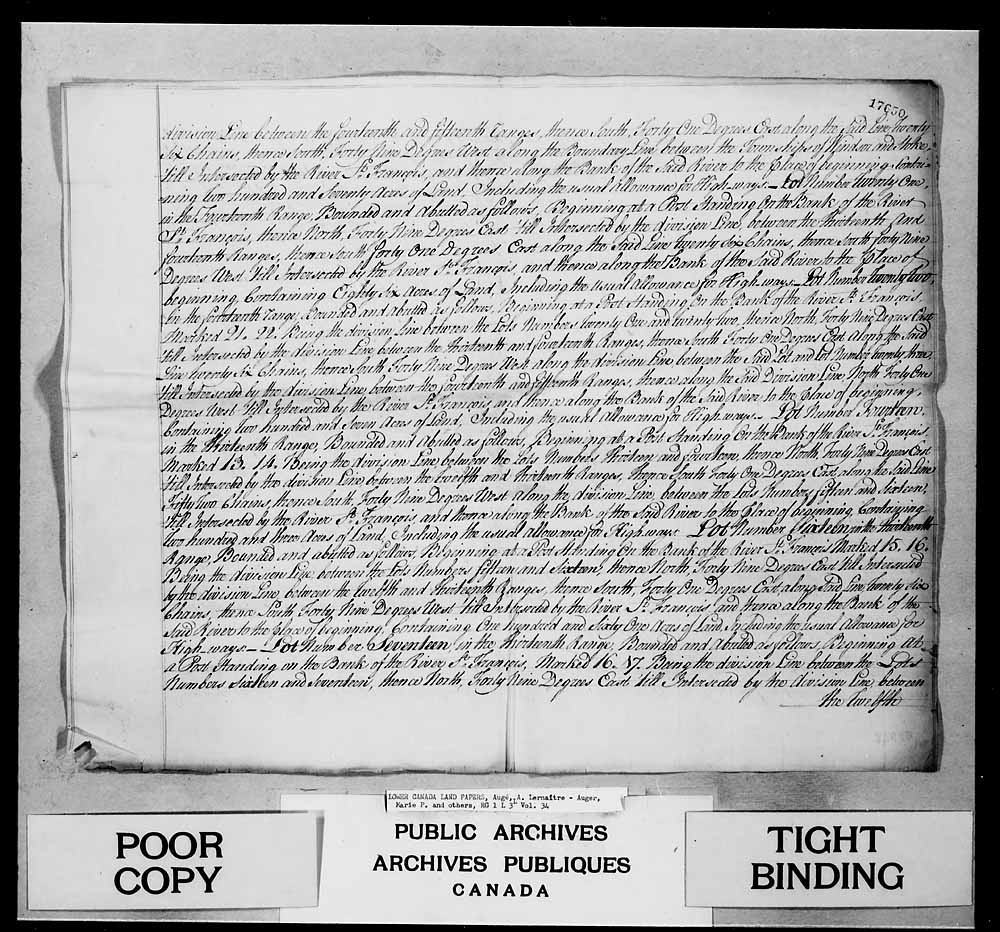 17650
division Line between the fourteenth and fifteenth Ranges, thence South, Forty One Degrees East along the Said Line, twenty
Six Chains, thence South, Forty Nine Degrees West along the Boundary Line between the Townships of Windsor and Stoke
till Intersected by the River St. François, and thence along the Bank of the Said River to the Place of beginning, Contai-
ning two hundred and Seventy Acres of Land, Including the usual Allowance for High ways. — Lot Number twenty One,
in the Fourteenth Range, Bounded and abutted as follows, Beginning at a Post Standing On the Bank of the River
St. François, thence North, Forty Nine Degrees East till Intersected by the division Line, between the thirteenth and
fourteenth Ranges, thence South forty One Degrees East along the Said Line twenty Six Chains, thence South forty Nine
Degrees West till Intersected by the River St. François, and thence along the Bank of the Said River to the Place of
beginning, Containing Eighty Six Acres of Land, Including the usual Allowance for High ways — Lot Number twenty two,
in the fourteenth Range, Bounded and abutted as follows, Beginning at a Post Standing On the Bank of the River St. François
Marked 21. 22. Being the division Line between the Lots Numbers twenty One and twenty two, thence North, Forty Nine Degrees East
till Intersected by the division Line between the thirteenth and fourteenth Ranges, thence South Forty One Degrees East along the Said
Line twenty Six Chains, thence South Forty Nine Degrees West along the division Line, between the Said Lot and Lot Number twenty three
till Intersected by the division Line, between the fourteenth and fifteenth Ranges, thence along the Said Division Line, North Forty One
Degrees West till Intersected by the River St. François and thence along the Bank of the Said River to the Place of beginning,
Containing two hundred and Seven Acres of Land, Including the usual allowance for High ways. — Lot Number Fourteen,
in the thirteenth Range, Bounded and abutted as follows, Beginning at a Post Standing On the Bank of the River St. François,
Marked 13. 14. Being the division Line between the Lots Numbers thirteen and fourteen, thence North, Forty Nine Degrees East
till Intersected by the division Line between the twelfth and thirteenth Ranges, thence South Forty One Degrees East, along the Said Line
Fifty two Chains, thence South Forty Nine Degrees West along the division Line, between the Lots Numbers fifteen and Sixteen,
till Intersected by the River St. François, and thence along the Bank of the Said River to the Place of beginning, Containing
two hundred and three Acres of Land, Including the usual allowance for High ways. Lot Number Sixteen in the thirteenth
Range, Bounded and abutted as follows, Beginning at a Post Standing On the Bank of the River St. François Marked 15. 16.
Being the division Line between the Lots Numbers fifteen and Sixteen, thence North, Forty Nine Degrees East till Intersected
by the division Line, between the twelfth and thirteenth Ranges, thence South, Forty One Degrees East, along Said Line, twenty Six
Chains, thence South, Forty Nine Degrees West till Intersected by the River St. François, and thence along the Bank of the
Said River to the Place of beginning, Containing One hundred and Sixty One Acres of Land, Including the usual Allowance for
High ways — Lot Number Seventeen, in the thirteenth Range, Bounded and abutted as follows, Beginning At
a Post Standing on the Bank of the River St. François, Marked 16. 17. Being the division Line between the Lots
Numbers Sixteen and Seventeen, thence North, Forty Nine Degrees East till Intersected by the division Line, between
the twelfth
LOWER CANADA LAND PAPERS, Augé, A. Lemaître - Auger,
Marie P. and others, RG 1 L 3L Vol. 34
POOR
COPY
PUBLIC ARCHIVES
ARCHIVES PUBLIQUES
CANADA
TIGHT
BINDING